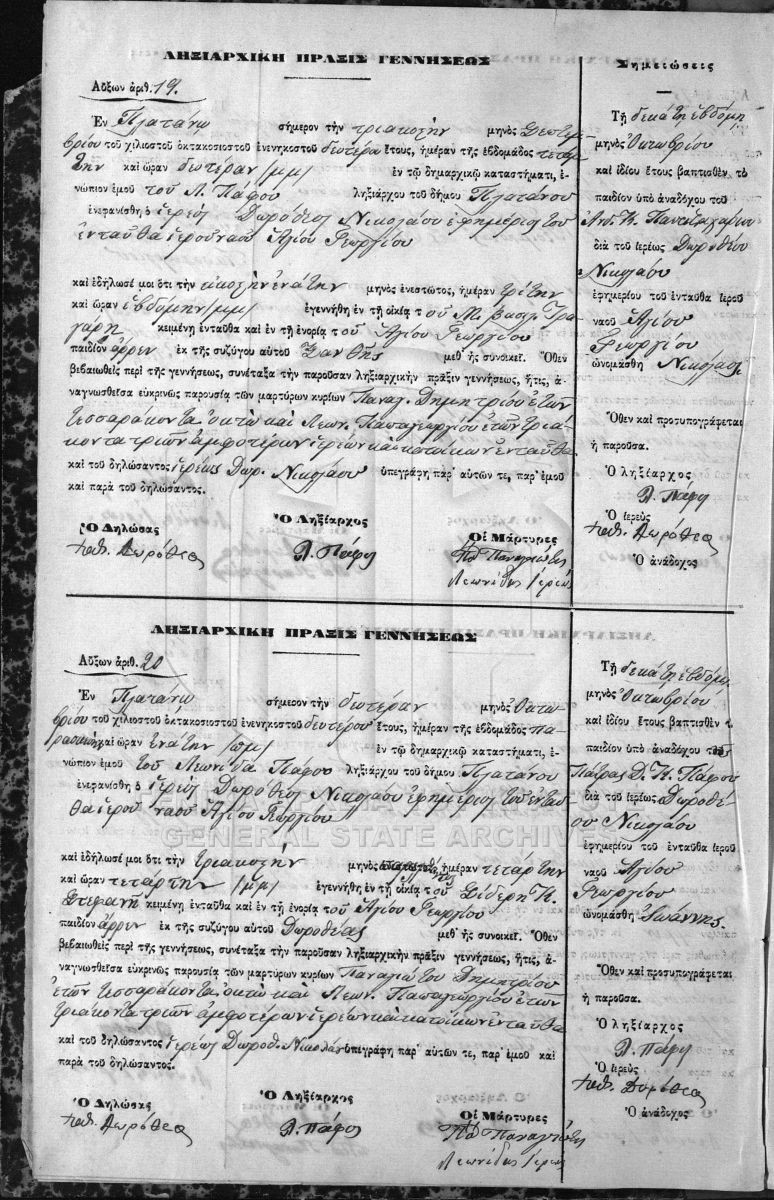 ΛΗΞΙΑΡΧΙΚΗ ΠΡΑΞΙΣ ΓΕΝΝΗΣΕΩΣ
Αὔξων ἀριθ. 19.
Ἐν Πλατάνῳ σήμερον τὴν τριακοστὴν μηνὸς Σεπτεμ-
βρίου τοῦ χιλιοστοῦ ὀκτακοσιοστοῦ ἐνενηκοστοῦ δευτέρου ἔτους, ἡμέραν τῆς ἑβδομάδος τετάρ-
την καὶ ὥραν δευτέραν /μμ/ ἐν τῷ δημαρχικῷ καταστήματι, ἐ-
νώπιον ἐμοῦ τοῦ Λ. Πάφου ληξιάρχου τοῦ δήμου Πλατάνου
ἐνεφανίσθη ὁ ἱερεὺς Δωρόθεος Νικολάου ἐφημέριος τοῦ
ἐνταῦθα ἱεροῦ ναοῦ Ἁγίου Γεωργίου
καὶ ἐδήλωσέ μοι ὅτι τὴν εἰκοστὴν ἐνάτην μηνὸς ἐνεστῶτος, ἡμέραν τρίτην
καὶ ὥραν ἑβδόμην /μμ/ ἐγεννήθη ἐν τῇ οἰκίᾳ τοῦ Μ. Βασιλ.
κειμένῃ ἐνταῦθα καὶ ἐν τῇ ἐνορίᾳ τοῦ Ἁγίου Γεωργίου
παιδίον ἄρρεν ἐκ τῆς συζύγου αὐτοῦ Ξανθῆς μεθ᾽ ἧς συνοικεῖ. Ὅθεν
βεβαιωθεὶς περὶ τῆς γεννήσεως, συνέταξα τὴν παροῦσαν ληξιαρχικὴν πρᾶξιν γεννήσεως, ἥτις, ἀ-
ναγνωσθεῖσα εὐκρινῶς παρουσίᾳ τῶν μαρτύρων κυρίων Παναγ. Δημητρίου ἐτῶν
τεσσαράκοντα ὀκτὼ καὶ Λεων. Παπαγεωργίου ἐτῶν τριά-
κοντα τριῶν ἀμφοτέρων ἱερέων καὶ κατοίκων ἐνταῦθα
καὶ τοῦ δηλώσαντος ἱερέως Δωρ. Νικολάου ὑπεγράφη παρ᾽ αὐτῶν τε, παρ᾽ ἐμοῦ
καὶ παρὰ τοῦ δηλώσαντος.
Ὁ Δηλώσας Ὁ Ληξίαρχος Οἱ Μάρτυρες
παπ. Δωρόθεος Λ. Πάφος Πδ Παναγιώτης
Λεωνίδας Ἱερεύς
Σημειώσεις
Τῇ δεκάτῃ ἑβδόμῃ
μηνὸς Ὀκτωβρίου
καὶ ἰδίου ἔτους βαπτισθὲν τὸ
παιδίον ὑπὸ ἀναδόχου τοῦ
διὰ τοῦ ἱερέως Δωροθέου
Νικολάου
ἐφημερίου τοῦ ἐνταῦθα ἱεροῦ
ναοῦ Ἁγίου
Γεωργίου
ὠνομάσθη Νικόλαος
Ὅθεν καὶ προσυπογράφεται
ἡ παροῦσα.
Ὁ ληξίαρχος
Λ. Πάφος
Ὁ ἱερεὺς
παπ. Δωρόθεος
Ὁ ἀνάδοχος
ΛΗΞΙΑΡΧΙΚΗ ΠΡΑΞΙΣ ΓΕΝΝΗΣΕΩΣ
Αὔξων ἀριθ. 20
Ἐν Πλατάνῳ σήμερον τὴν δευτέραν μηνὸς Ὀκτω-
βρίου τοῦ χιλιοστοῦ ὀκτακοσιοστοῦ ἐνενηκοστοῦ δευτέρου ἔτους, ἡμέραν τῆς ἑβδομάδος Πα-
ρασκευὴν καὶ ὥραν ἐνάτην /πμ/ ἐν τῷ δημαρχικῷ καταστήματι, ἐ-
νώπιον ἐμοῦ τοῦ Λεωνίδα Πάφου ληξιάρχου τοῦ δήμου Πλατάνου
ἐνεφανίσθη ὁ ἱερεὺς Δωρόθεος Νικολάου ἐφημέριος τοῦ ἐνταῦ-
θα ἱεροῦ ναοῦ Ἁγίου Γεωργίου
GENERAL STATE ARCHIVES
καὶ ἐδήλωσέ μοι ὅτι τὴν τριακοστὴν μηνὸς ἡμέραν τετάρτην
καὶ ὥραν τετάρτην /μμ/ ἐγεννήθη ἐν τῇ οἰκίᾳ τοῦ Σιδερῆ Ν.
Στεφανῆ κειμένῃ ἐνταῦθα καὶ ἐν τῇ ἐνορίᾳ τοῦ Ἁγίου Γεωργίου
παιδίον ἄρρεν ἐκ τῆς συζύγου αὐτοῦ Δωροθέας μεθ᾽ ἧς συνοικεῖ. Ὅθεν
βεβαιωθεὶς περὶ τῆς γεννήσεως, συνέταξα τὴν παροῦσαν ληξιαρχικὴν πρᾶξιν γεννήσεως, ἥτις, ἀ-
ναγνωσθεῖσα εὐκρινῶς παρουσίᾳ τῶν μαρτύρων κυρίων Παναγιώτου Δημητρίου
ἐτῶν τεσσαράκοντα ὀκτὼ καὶ Λεων. Παπαγεωργίου ἐτῶν
τριάκοντα τριῶν ἀμφοτέρων ἱερέων καὶ κατοίκων ἐνταῦθα
καὶ τοῦ δηλώσαντος ἱερέως Δωροθ. Νικολάου ὑπεγράφη παρ᾽ αὐτῶν τε, παρ᾽ ἐμοῦ καὶ
παρὰ τοῦ δηλώσαντος.
Ὁ Δηλώσας Ὁ Ληξίαρχος Οἱ Μάρτυρες
παπ. Δωρόθεος Λ. Πάφος Πδ Παναγιώτης
Λεωνίδας Ἱερεύς
Τῇ δεκάτῃ ἑβδόμῃ
μηνὸς Ὀκτωβρίου
καὶ ἰδίου ἔτους βαπτισθὲν τ.
παιδίον ὑπὸ ἀναδόχου τῆς
Πάτρας Δ. Ν. Πάφου
διὰ τοῦ ἱερέως Δωροθέ-
ου Νικολάου
ἐφημερίου τοῦ ἐνταῦθα ἱεροῦ
ναοῦ Ἁγίου
Γεωργίου
ὠνομάσθη Ἰωάννης.
Ὅθεν καὶ προσυπογράφεται
ἡ παροῦσα.
Ὁ ληξίαρχος
Λ. Πάφος
Ὁ ἱερεὺς
παπ. Δωρόθεος
Ὁ ἀνάδοχος